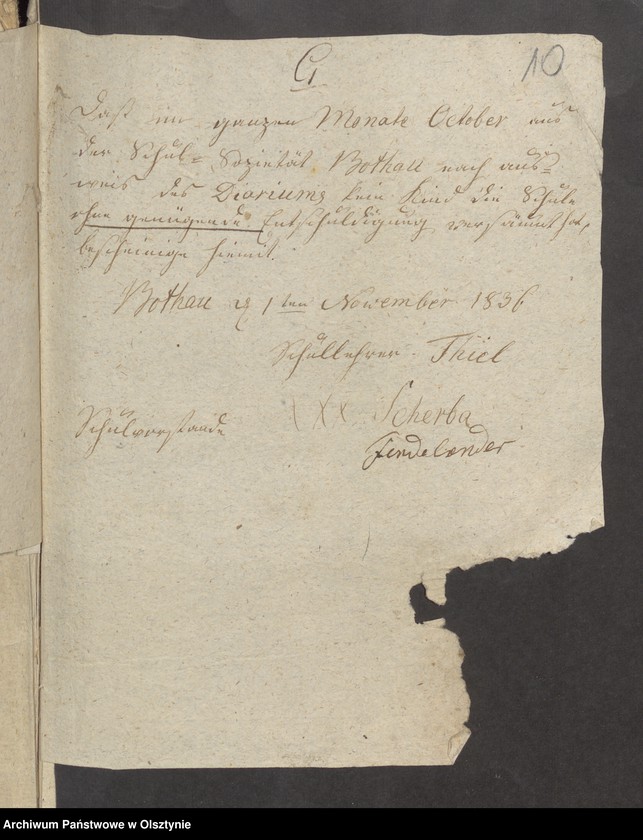 G
10
Daß im ganzen Monate October aus
der Schul= Sozietät Bothau nach aus=
weis des Diariums kein Kind die Schule
ohne genügende Entschuldigung versäumt hat,
bescheinige hiemit.
Bothau d 1ten November 1836
Schullehrer Thiel
Schulvorstände XXX Scherba
Archiwum Państwowe w Olsztynie